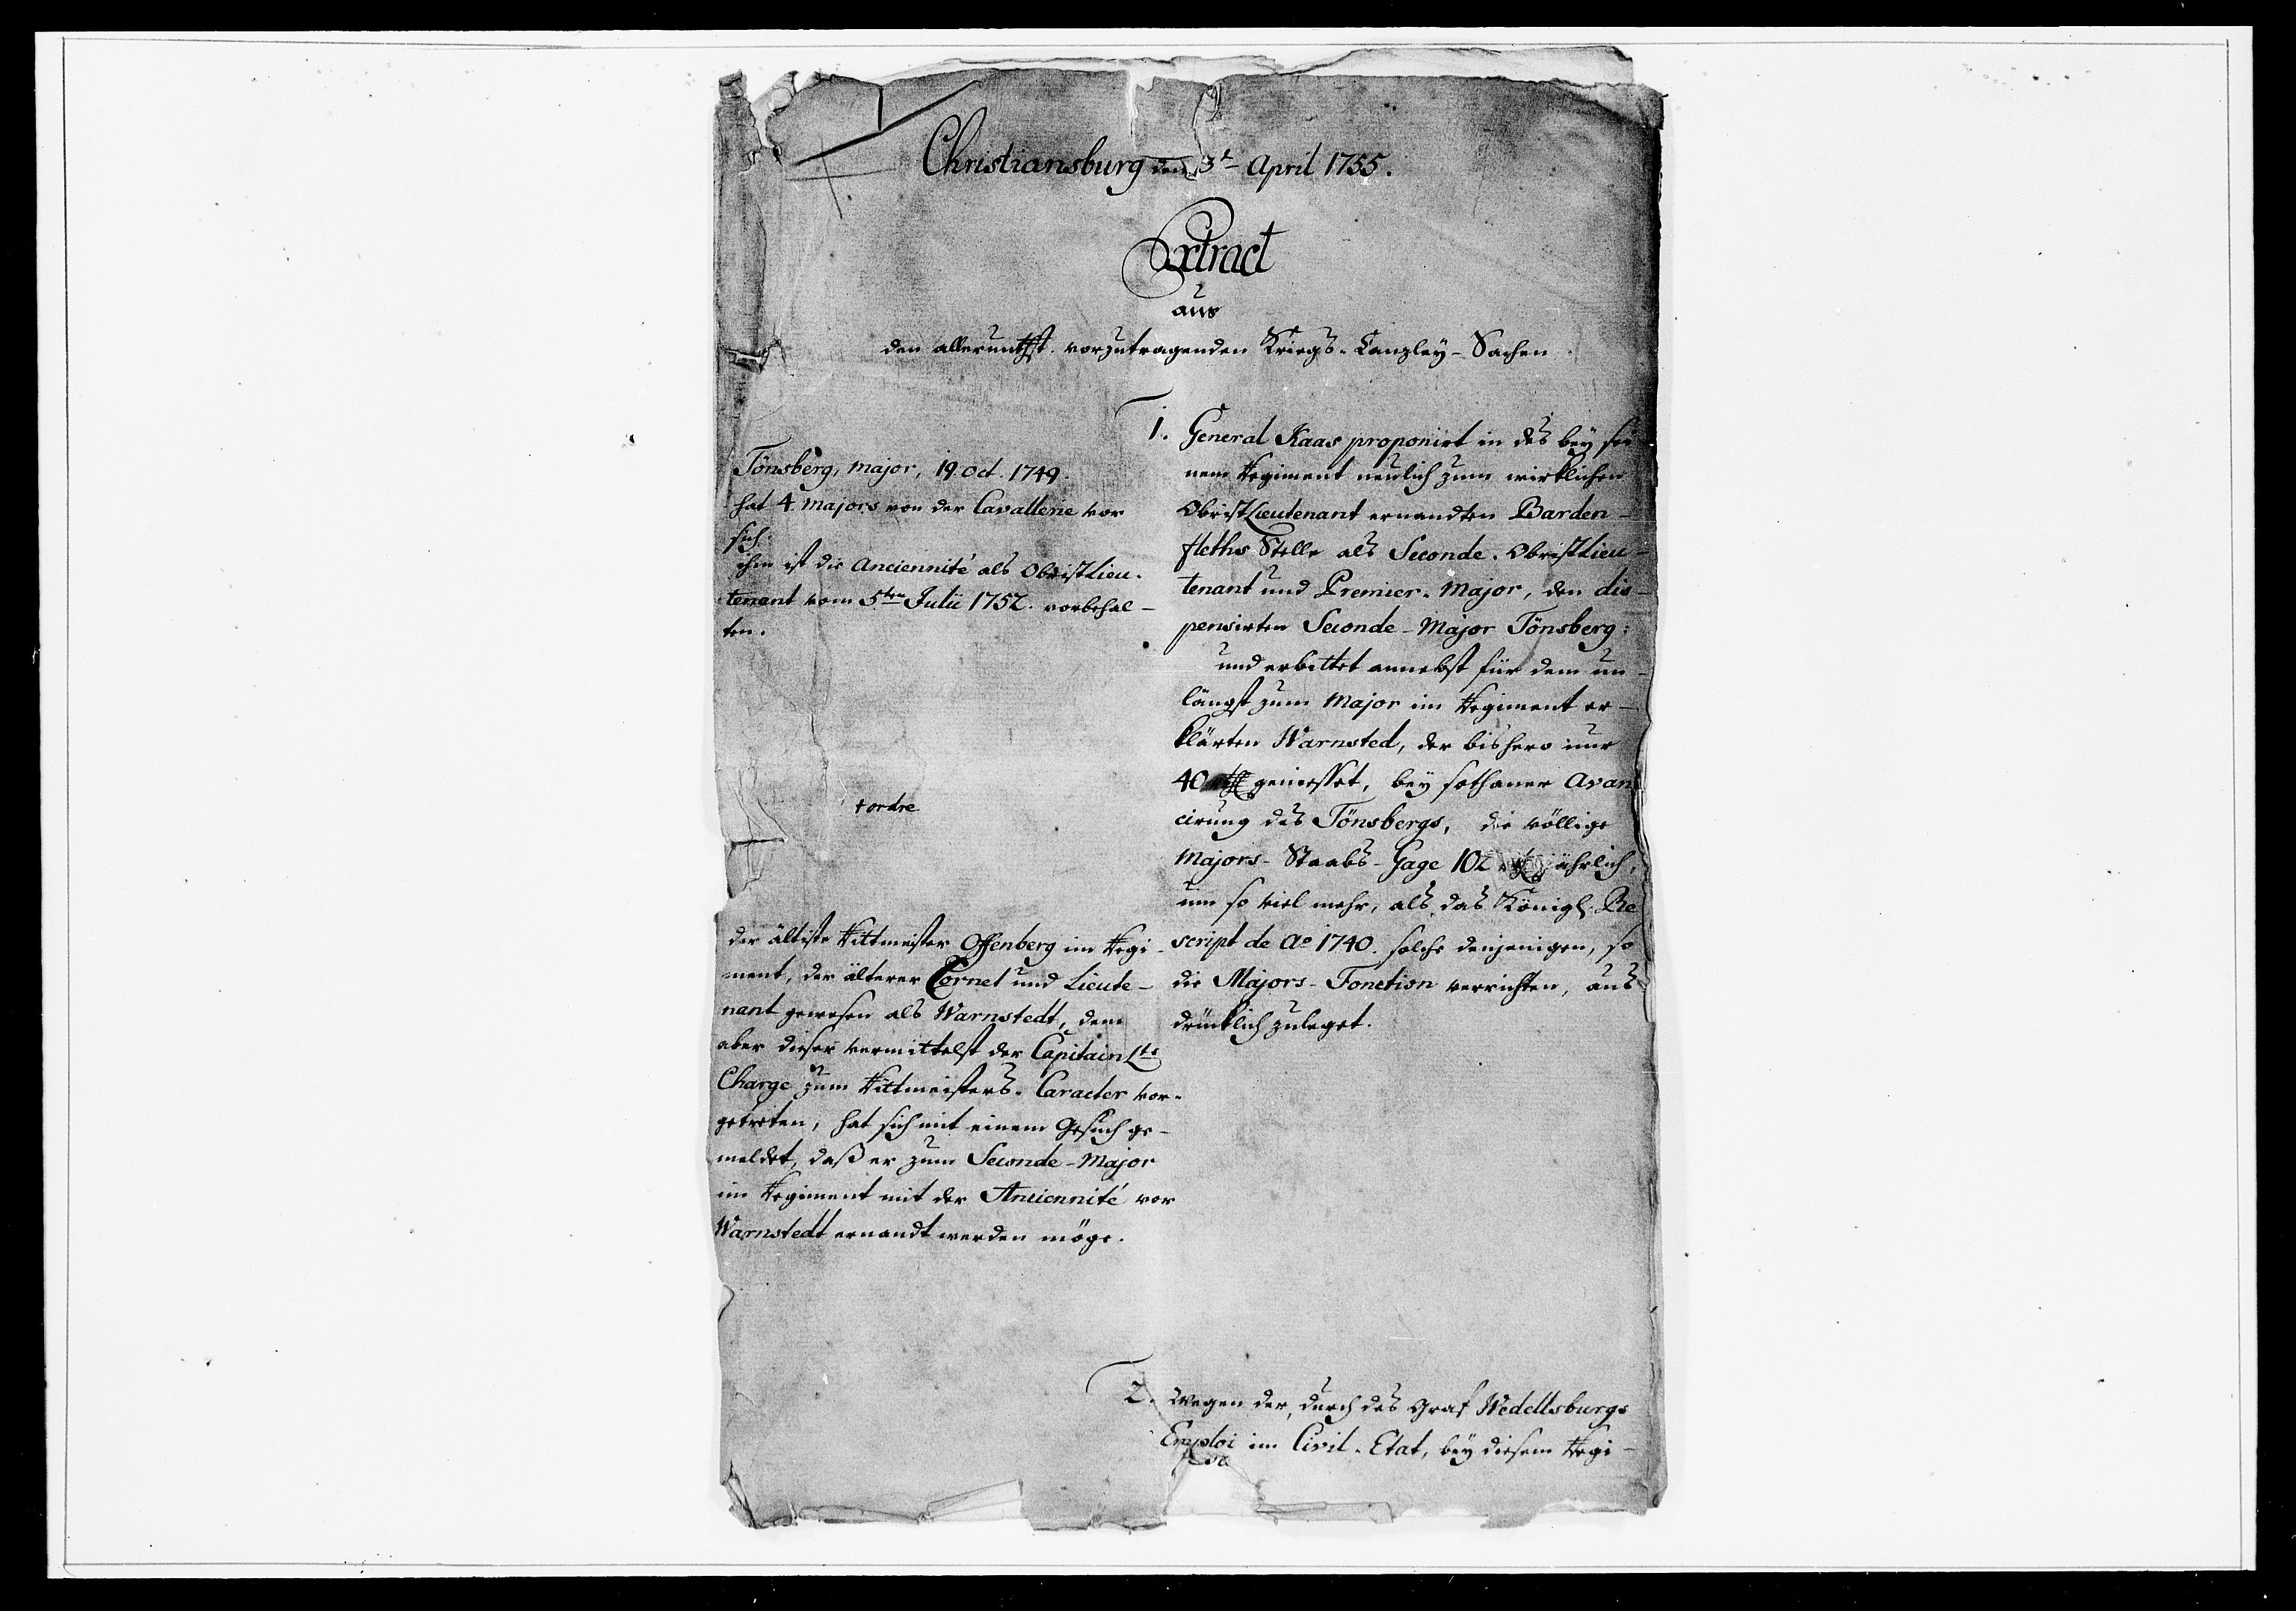 Christiansburg den 3t April 1755.
Extract
aus
den alleruntthst. vorzutragenden Kriegs-Canzley-Sachen
1. General Kaas proponirt in des bey sei
nem Regiment neulich zum wirklichen
ObristLieutenant ernandten Barden-
fleths Stelle als Seconde-ObristLieu-
tenant und Premier-Major, den dis-
pensirten Seconde-Major Tönsberg;
und erbittet annebst für dem un-
längst zum Major im Regiment er-
klärten Warnsted, der bishero nur
40 rthlr geniesset, bey sothaner Avan
cirung des Tönsbergs, die völlige
Majors-Staabs-Gage 102 jährlich,
um so viel mehr, als das Königl. Re
script de Ao 1740. solche denjenigen, so
die Majors-Fonction verrichten, aus
drücklich zuleget.
Tönsberg, Major, 19. Oct. 1749.
hat 4. Majors von der Cavallerie vor
sich.
ihm ist die Anciennité als ObristLieu-
tenant vom 5ten Julii 1752. vorbehal-
ten.
+ ordre
der älteste Rittmeister Offenberg im Regi-
ment, der älterer Cornet und Lieute-
nant gewesen als Warnstedt, dem
aber dieser vermittelst der Capitain Lts
Charge zum Rittmeisters-Caracter vor-
getreten, hat sich mit einem Gesuch ge-
meldet, daß er zum Seconde-Major
im Regiment mit der Anciennité vor
Warnstedt ernandt werden möge.
2. Wegen der, durch des Graf Wedellsburgs
Emploi im Civil-Etat, bey diesem Regi-